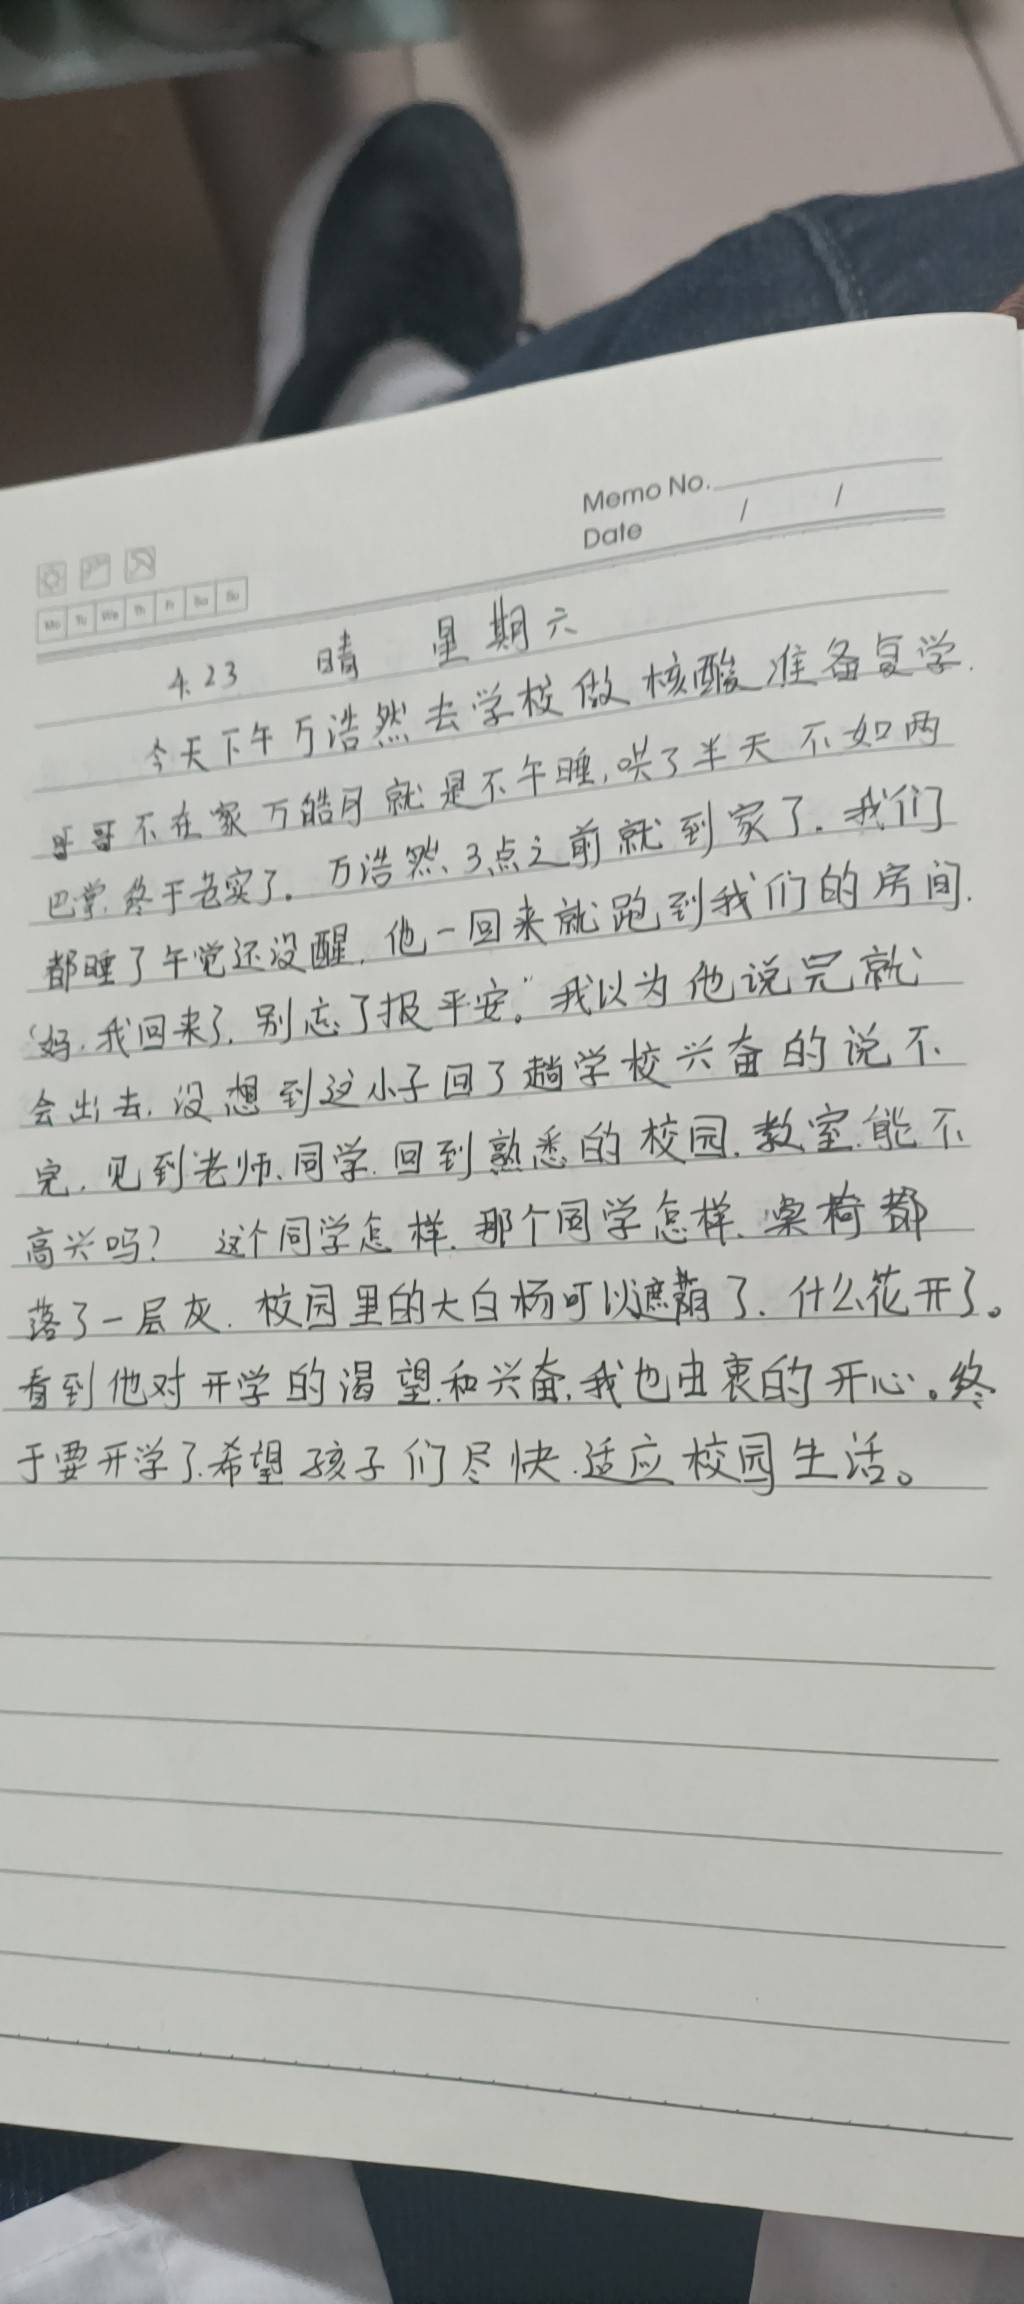 Memo No.
Date / /
Mo Tu We Th Fr Sa Su
4.23 晴 星期六
今天下午万浩然去学校做核酸准备复学.
哥哥不在家万皓月就是不午睡,哄了半天不如两
巴掌.终于老实了。万浩然、3点之前就到家了.我们
都睡了午觉还没醒.他一回来就跑到我们的房间.
“妈.我回来了.别忘了报平安。”我以为他说完就
会出去.没想到这小子回了趟学校兴奋的说不
完.见到老师、同学.回到熟悉的校园.教室.能不
高兴吗? 这个同学怎样.那个同学怎样、桌椅都
落了一层灰.校园里的大白杨可以遮荫了.什么花开了。
看到他对开学的渴望.和兴奋.我也由衷的开心。终
于要开学了.希望孩子们尽快.适应校园生活。